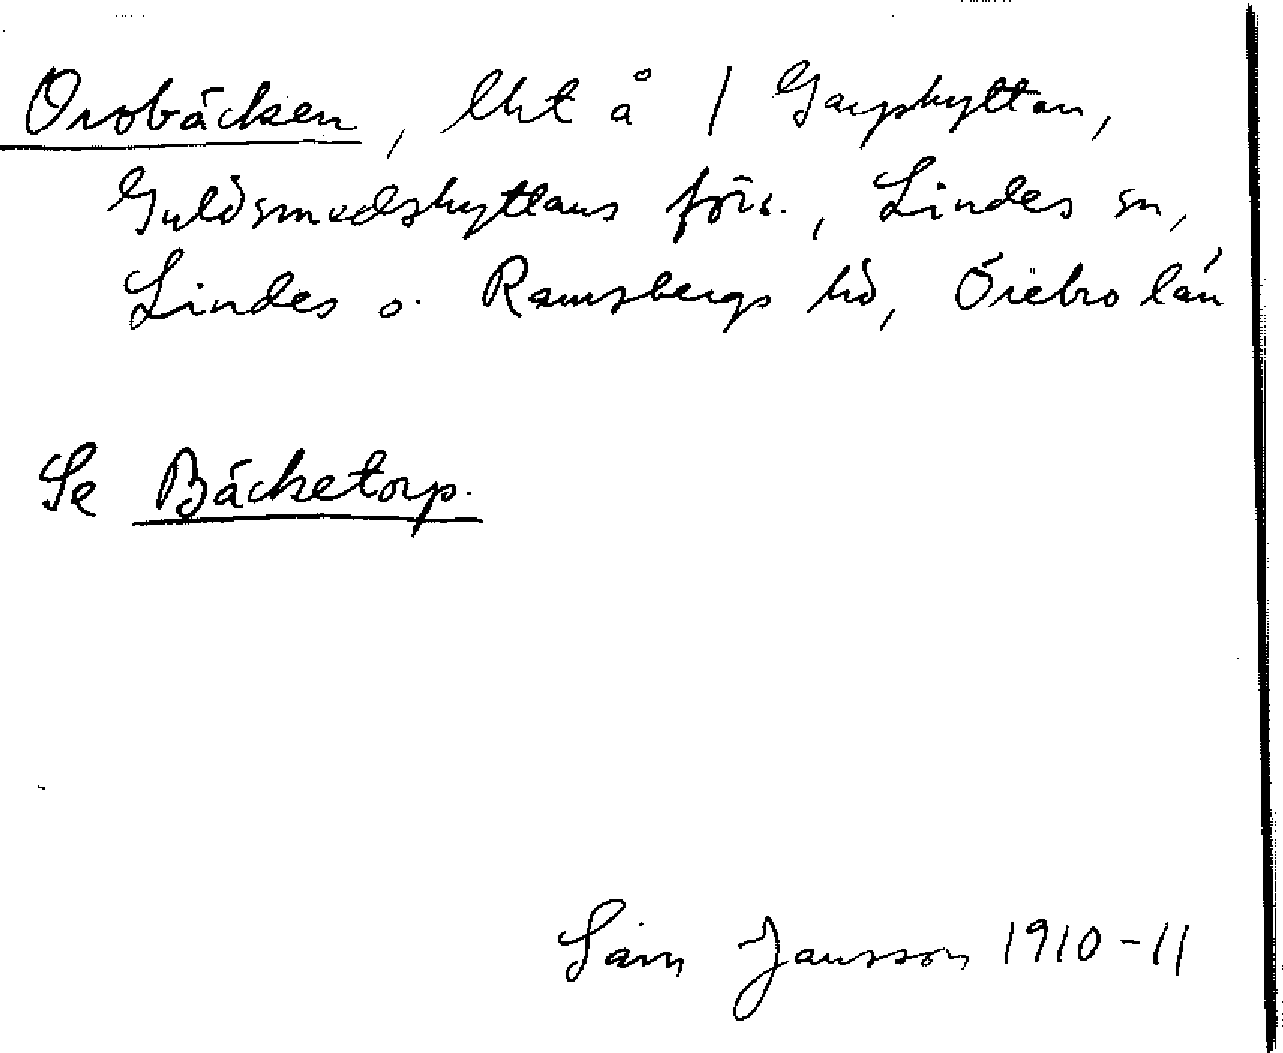 Orrobäcken, lht å / Garphyttan,
Guldsmedshyttans förs., Lindes sn,
Lindes o. Ramsbergs hd, Örebro län
Se Bäcketorp.
Sam Jansson 1910-11